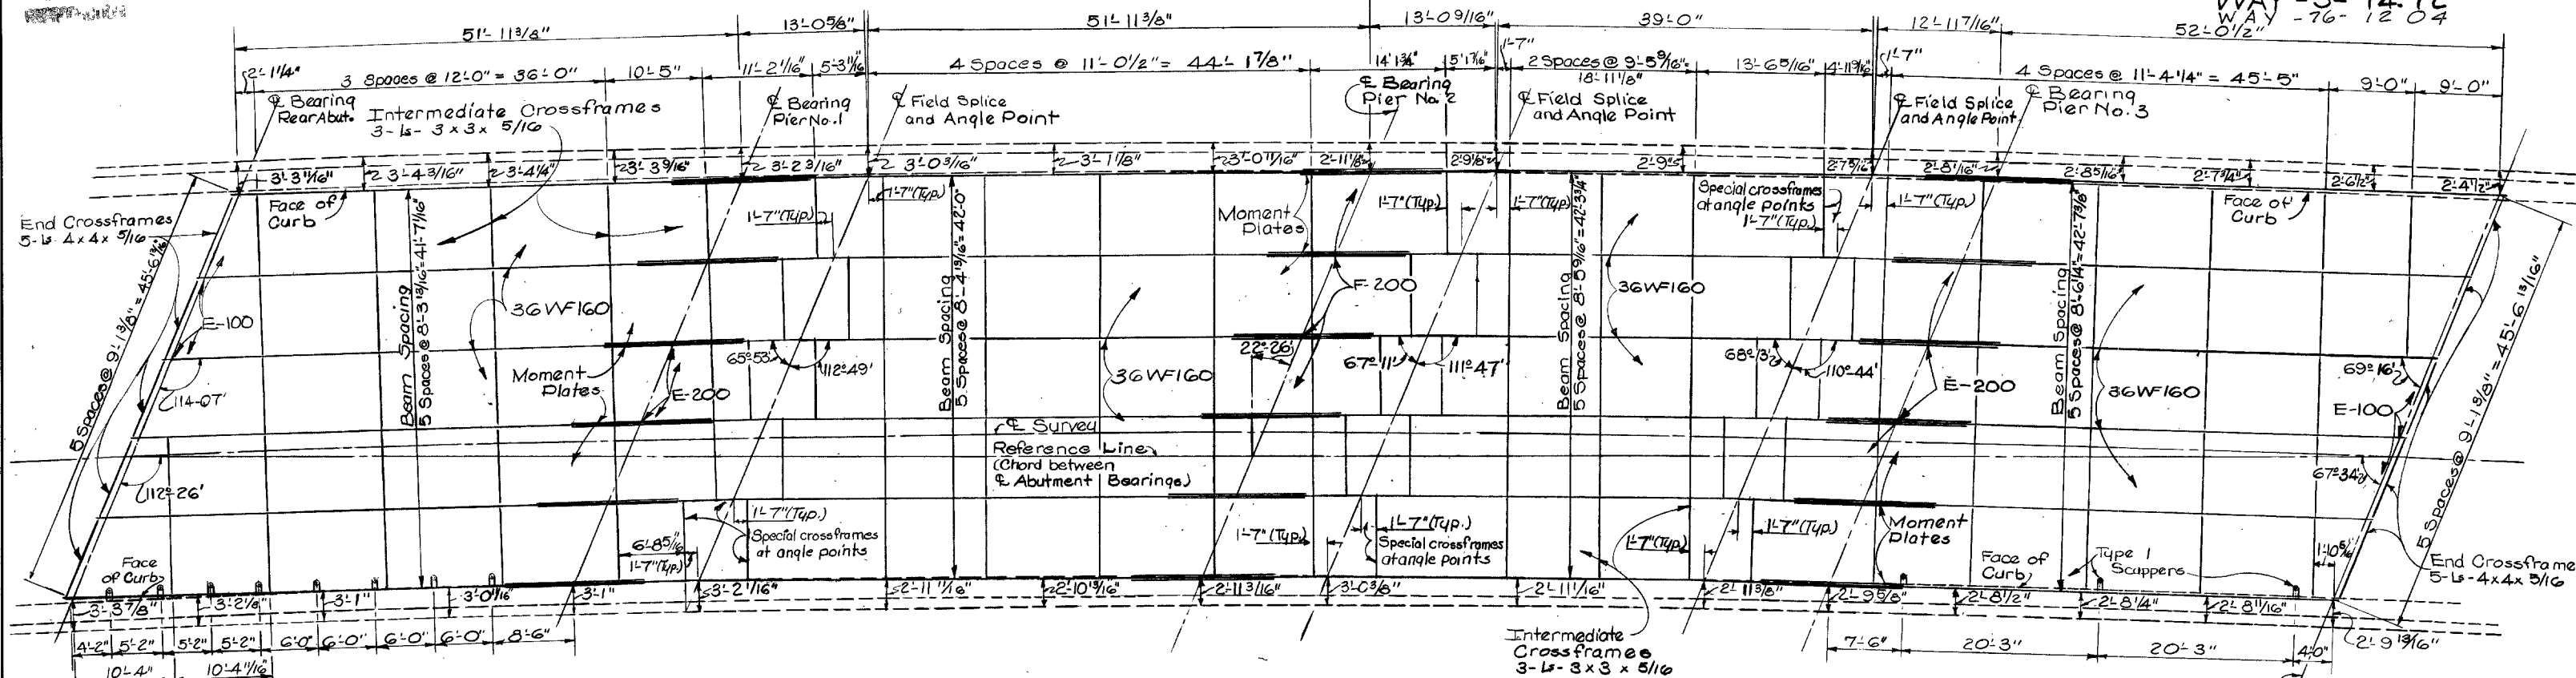 WAY-3-14.12
WAY -76- 12 04
51'-11 3/8" 13'-0 5/8" 51'-11 3/8" 13'-0 9/16" 39'-0" 12'-11 7/16" 52'-0 1/2"
2'-1 1/4" 3 Spaces @ 12'-0" = 36'-0" 10'-5" 11'-2 1/16" 5'-3 1/16" 4 Spaces @ 11'-0 1/2" = 44'-1 7/8" 14'1 3/4" 5'1 7/16" 1'-7" 2 Spaces @ 9'-5 9/16" 13'-6 5/16" 4'-11 9/16" 1'-7" 4 Spaces @ 11'-4 1/4" = 45'-5" 9'-0" 9'-0"
18'-11 1/8"
℄ Bearing
Rear Abut.
Intermediate Crossframes
3-Ls- 3 x 3 x 5/16
℄ Bearing
Pier No. 1
℄ Field Splice
and Angle Point
℄ Bearing
Pier No. 2
℄ Field Splice
and Angle Point
℄ Field Splice
and Angle Point
℄ Bearing
Pier No. 3
3'-3 11/16" 3'-4 3/16" 3'-4 1/4" 3'-3 9/16" 3'-2 3/16" 3'-0 3/16" 3'-1 1/8" 3'-0 11/16" 2'-11 1/8" 2'-9 1/8" 2'-9" 2'-7 5/16" 2'-8 1/16" 2'-8 5/16" 2'-7 3/4" 2'-6 1/2" 2'-4 1/2"
End Crossframes
5-Ls 4 x 4 x 5/16
Face of
Curb
1'-7" (Typ.)
1'-7" (Typ.)
Moment
Plates
1'-7" (Typ.)
1'-7" (Typ.)
Special crossframes
at angle points
1'-7" (Typ.)
1'-7" (Typ.)
Face of
Curb
5 Spaces @ 9'-1 3/8" = 45'-6 13/16"
E-100
Beam Spacing
5 Spaces @ 8'-3 13/16" = 41'-7 1/16"
36WF160
Beam Spacing
5 Spaces @ 8'-4 13/16" = 42'-0"
F-200
Beam Spacing
5 Spaces @ 8'-5 9/16" = 42'-3 3/4"
36WF160
Beam Spacing
5 Spaces @ 8'-6 1/4" = 42'-7 3/8"
5 Spaces @ 9'-1 3/8" = 45'-6 13/16"
114°-07'
Moment
Plates
65°53'
112°49'
E-200
36WF160
22°-26'
67°-11'
111°47'
68°13'
110°44'
E-200
36WF160
69°16'
E-100
℄ Survey
Reference Line
(Chord between
℄ Abutment Bearings)
112°-26'
67°34'
1'-7" (Typ.)
Special crossframes
at angle points
6'-8 5/16"
1'-7" (Typ.)
1'-7" (Typ.)
1'-7" (Typ.)
Special crossframes
at angle points
1'-7" (Typ.)
1'-7" (Typ.)
Moment
Plates
Face of
Curb
Type 1
Scuppers
1'-10 5/16"
End Crossframe
5-Ls-4x4x 5/16
Face
of Curb
3'-3 7/8" 3'-2 1/8" 3'-1" 3'-0 1/16" 3'-1" 3'-2 1/16" 2'-11 11/16" 2'-10 13/16" 2'-11 3/16" 3'-0 3/8" 2'-11 1/16" 2'-11 3/8" 2'-9 5/8" 2'-8 1/2" 2'-8 1/4" 2'-8 11/16" 2'-9 13/16"
4'-2" 5'-2" 5'-2" 5'-2" 6'-0" 6'-0" 6'-0" 6'-0" 8'-6"
10'-4" 10'-4 11/16"
Intermediate
Crossframes
3-Ls- 3 x 3 x 5/16
7'-6" 20'-3" 20'-3" 4'0"